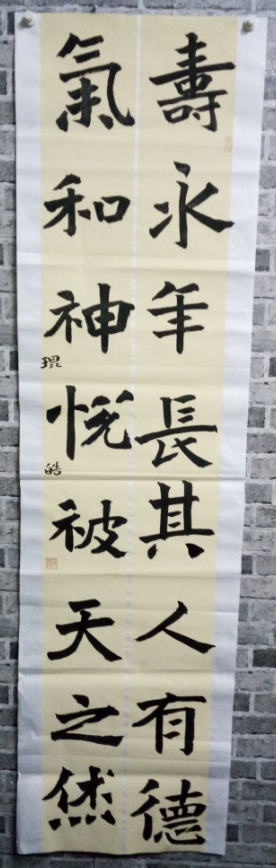 壽永年長其人有德
氣和神悅被天之烋
琨皓